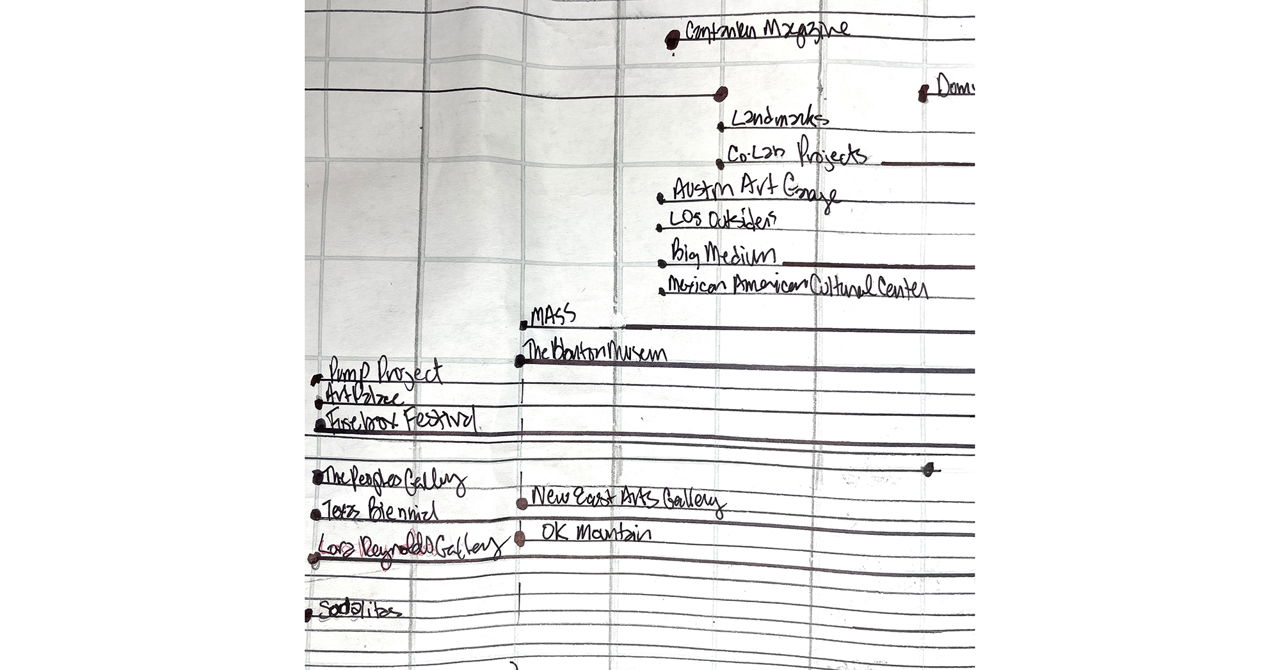 Magazine
Dom
Landmarks
Co-Lab Projects
Austin Art Garage
LOs Outsiders
Big Medium
Mexican American Cultural Center
MASS
The Blanton Musem
Pump Project
Art Palace
Firebox Festival
The Peoples Gallery
New East Arts Gallery
Texas Biennial
OK Mountain
Lora Reynolds Gallery
Sodalitas